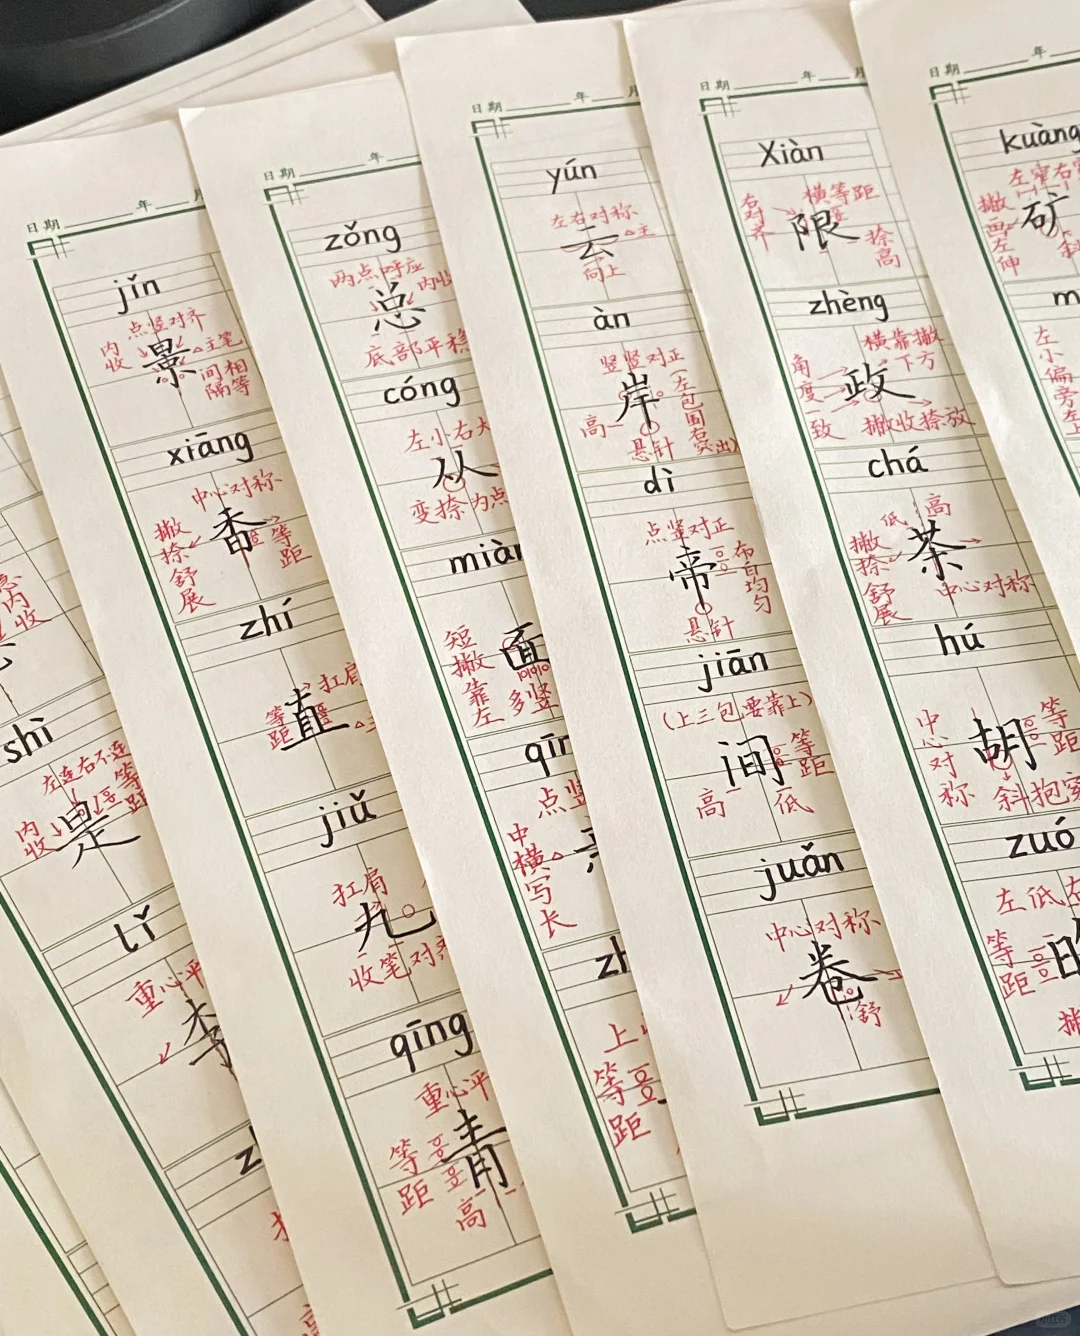 内收
shì
左连右不连
等距
内收
是
lǐ
重心平
李
日期 年 月
jǐn
点竖对齐
内收
主笔
景
间隔相等
xiāng
中心对称
撇捺舒展
香
等距
zhí
扛肩
等距
直
jiǔ
扛肩
九
收笔对齐
qīng
重心平
等距
青
高
日期 年
zǒng
两点呼应
内收
总
底部平稳
cóng
左小右大
从
变捺为点
miàn
短撇靠左
面
多竖
中横写长
上
等距
日期 年 月
yún
左右对称
云
主
向上
àn
竖竖对正
岸
高
悬针
(左包围右突出)
dì
点竖对正
帝
布白均匀
悬针
jiān
(上三包,要靠上)
间
等距
高
低
juǎn
中心对称
卷
舒
日期 年 月
Xiàn
右对齐
横等距
限
捺高
zhèng
横靠撇下方
角度一致
政
撇收捺放
chá
低
高
撇捺舒展
茶
中心对称
hú
中心对称
胡
等距
斜抱穿
zuó
左低
等距
昨
日期 年
kuàng
左窄右宽
撇画左伸
矿
左小偏旁靠上